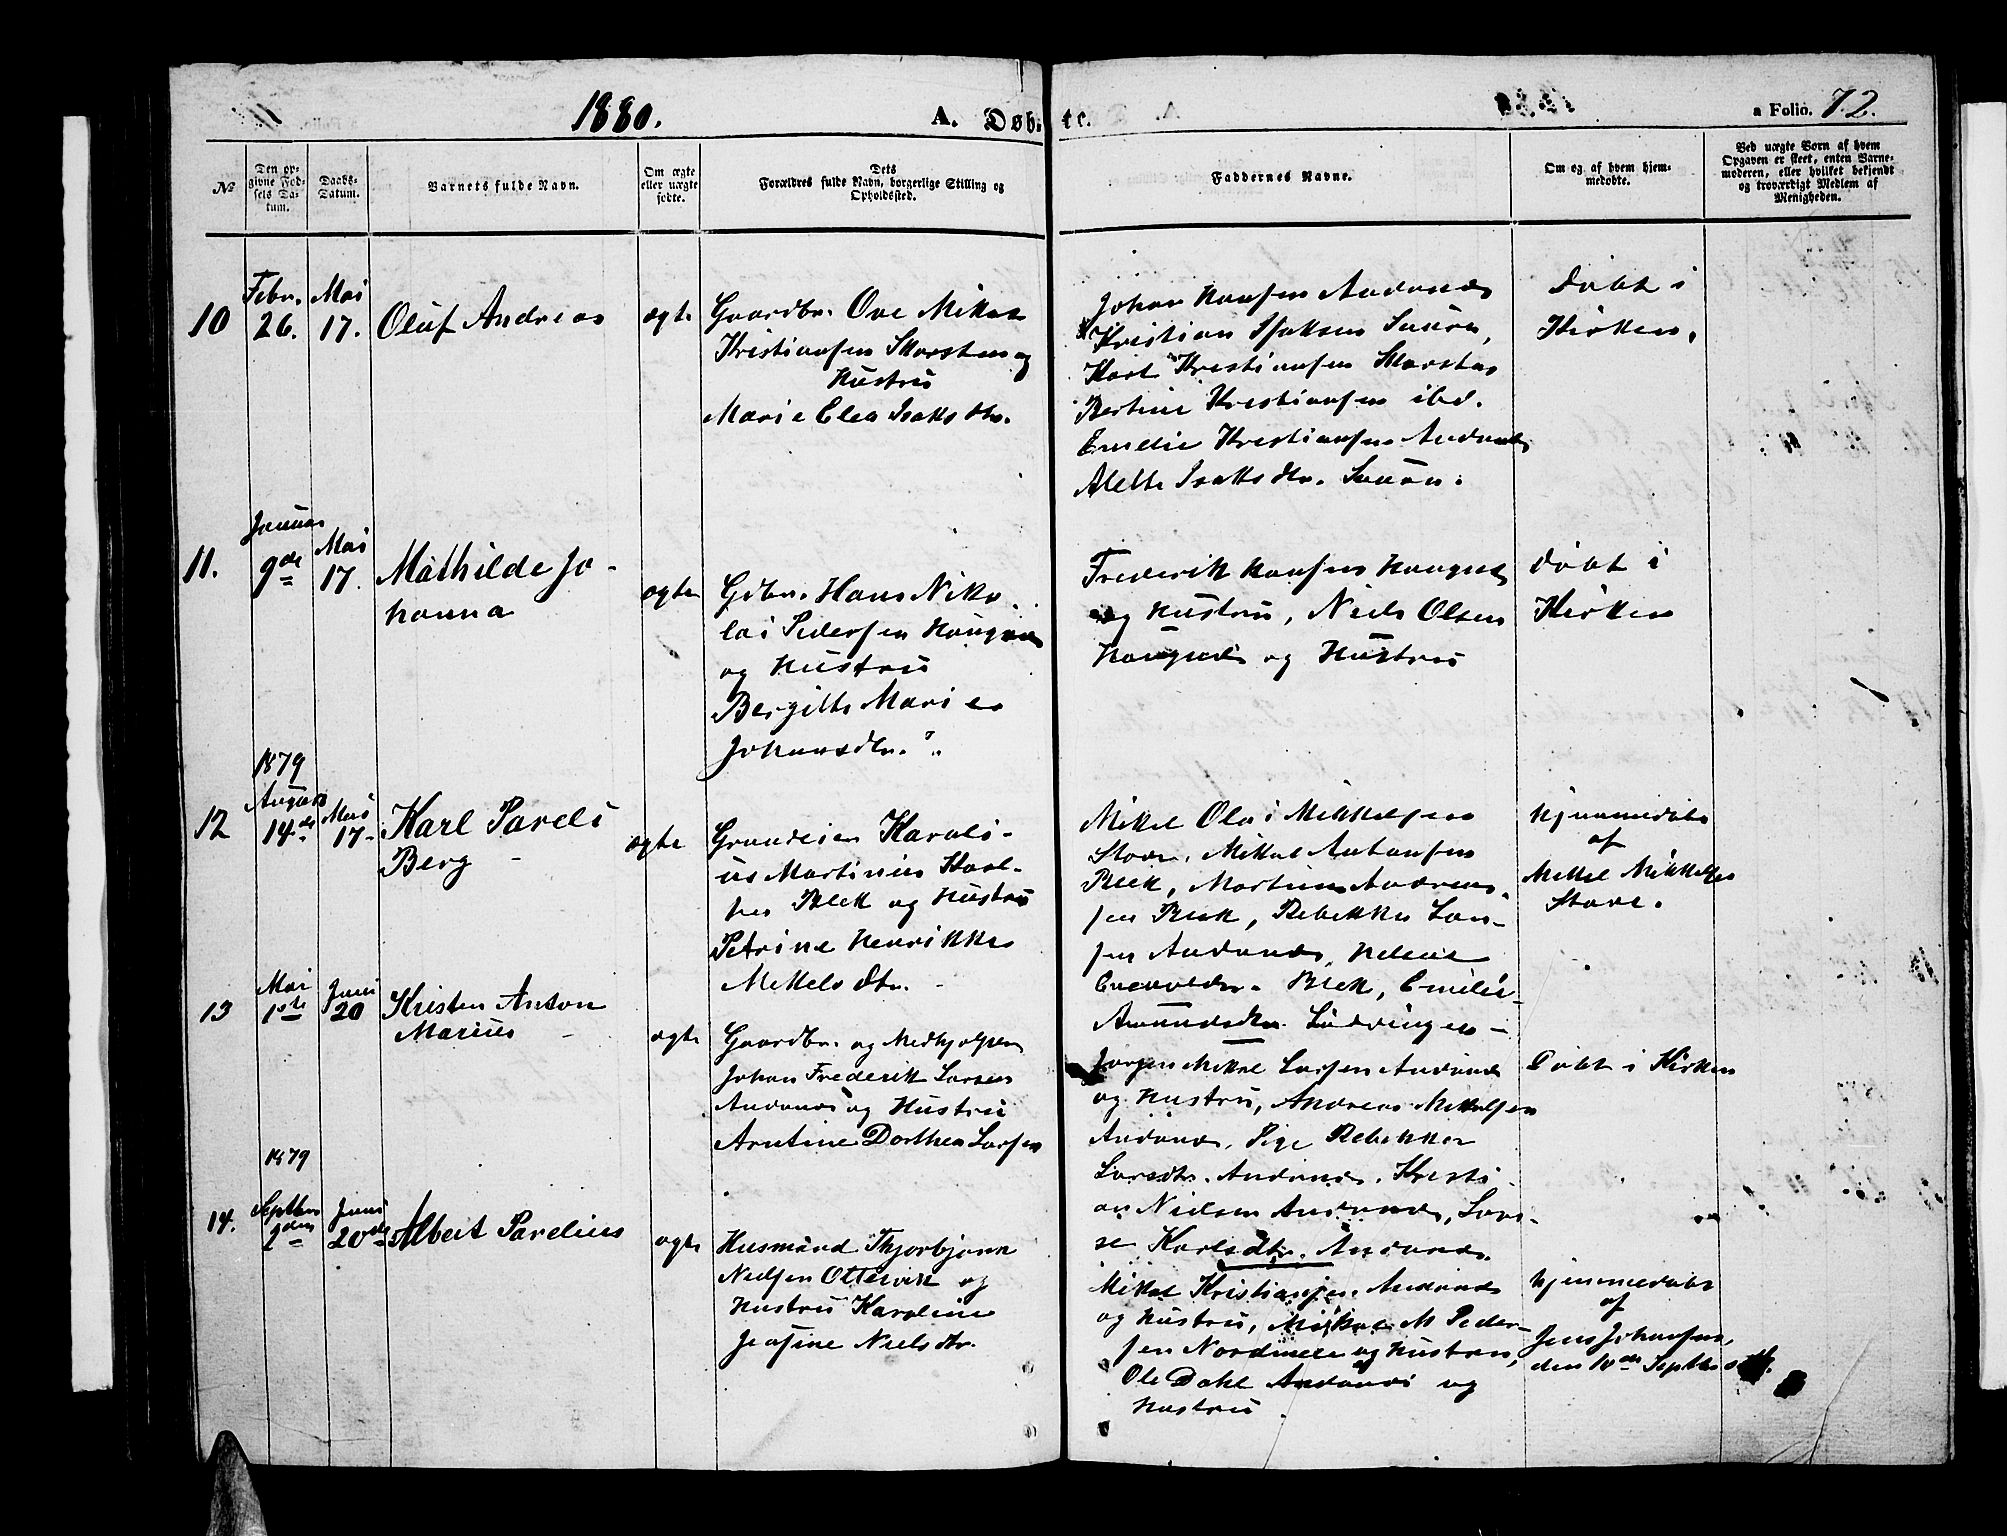 1880.
A. Døbte.
a Folio. 72.
№
Den op-
givne Fød-
sels Da-
tum.
Daabs-
Datum.
Barnets fulde Navn.
Om ægte
eller uægte
fødte.
Dets
Forældres fulde Navn, borgerlige Stilling og
Opholdssted.
Faddernes Navne.
Om og af hvem hjem-
medøbte.
Ved uægte Børn af hvem
Opgaven er skeet, enten Barne-
moderen, eller hvilket bekjendt
og troværdigt Medlem af
Menigheden.
10
Febr.
26.
Mai
17.
Oluf Andreas
ægte
Gaardbr. Ove Mikal
Kristiansen Skarsten og
Hustru
Marie Elea Isaksdtr.
Johan Hansen Andenæs
Kristian
Karl Kristiansen
Bertine Kristiansen ibd.
Emelie Kristiansen Andenæs
Alette Isaksdtr.
Døbt i
Kirken.
11.
Januar
9de
Mai
17.
Mathilde Jo-
hanna
ægte
Gdbr. Hans Niko-
lai Pedersen Haugnæs
og Hustru
Bergitte Marie
Johansdtr.
Frederik Hansen Haugnæs
og Hustru, Niels Olsen
Haugnæs og Hustru
Døbt i
Kirken
12
1879
August
14de
Mai
17
Karl Pareli
Berg
ægte
Grundeier Karoli-
us Martinius Karl-
sen Bleik og Hustru
Petrine Henrikke
Mekelsdtr.
Mikal Olai Mikkelsen
Stave. Mikal Antonsen
Bleik, Martinus Andreas-
sen Bleik, Rebekka Lar-
sen Andenæs, Helene
Bleik, Emelie
Amundsdtr. Lødingen
Hjemmedøbt
af
Mekel Mikkelsen
Stave.
13
Mai
1ste
Juni
20
Kristen Anton
Marius
ægte
Gaardbr. og Medhjelper
Johan Frederik Larsen
Andenæs og Hustru
Arntine Dorthea Larsen
Jørgen Mikal Larsen Andenæs
og Hustru, Andreas Mikkelsen
Andenæs, Pige Rebekka
Larsdtr. Andenæs, Kristi-
an Nielsen Andenæs, Lovi-
se Karlsdtr. Andenæs.
Døbt i Kirken
14.
1879
Septber
2den
Juni
20de
Albert Parelius
ægte
Husmand Thjorbjørn
Nielsen Ottervik og
Hustru Karoline
Josfine Nielsdtr.
Mikal Kristiansen Andenæs
og Hustru, Mikal M Peder-
sen Nordmele og Hustru,
Ole Dahl Andenæs og
Hustru.
Hjemmedøbt
af
Jens Johansen,
den 10de Septbr